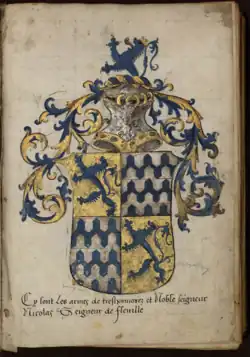 Cy sont Les armes de treshonnores et Noble seigneur
Nicolas Seigneur de fleville